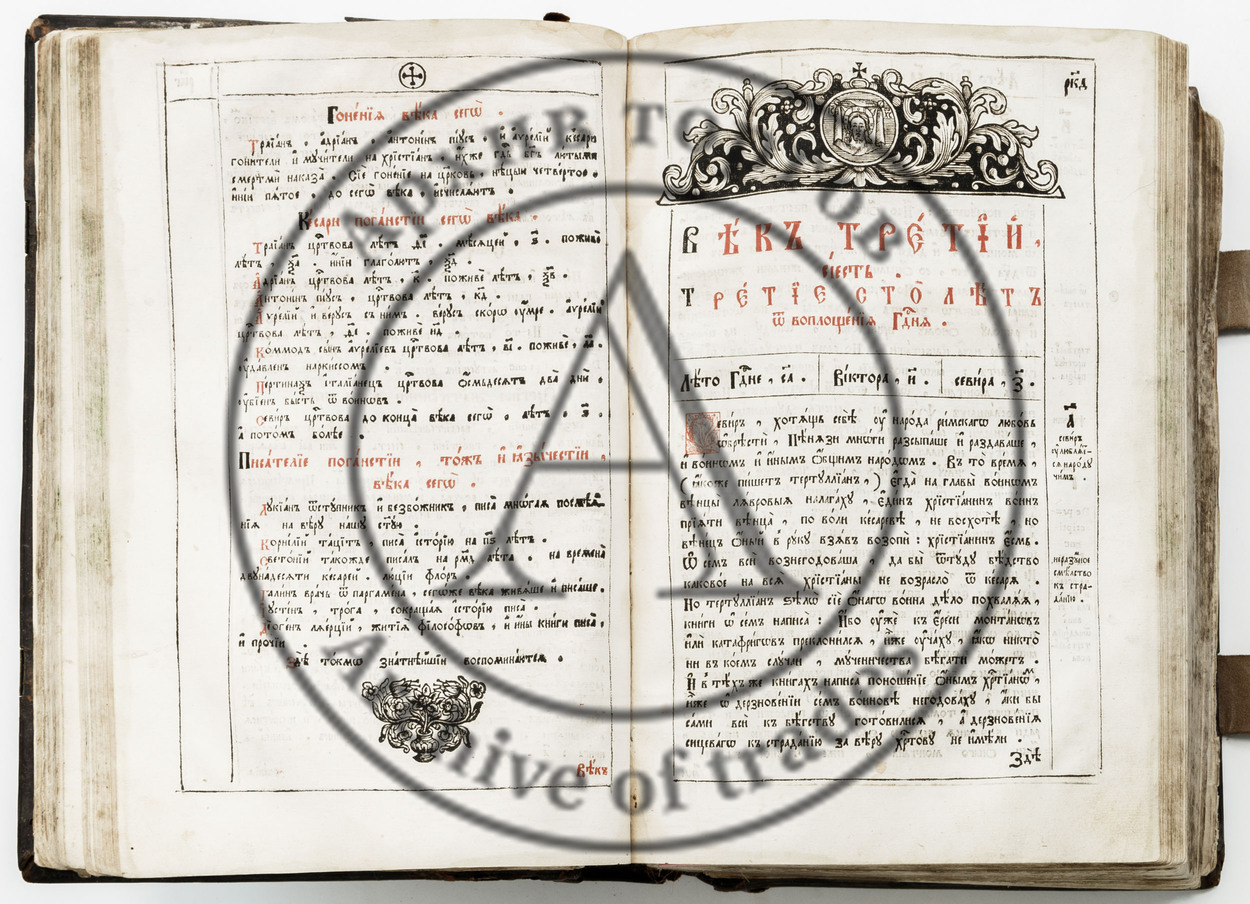 Гоненїѧ вѣка сегѡ̀ .
Траїанъ . адрїанъ . антонинъ пїусъ . и҆ аѵрелїй кесари
гонители и҆ мꙋчители на хрїстїанъ
смертми наказа̀ . Сїе гоненїе на цр҃ковь , нѣцыи четвертое .
и҆нїи пѧтое . до сегѡ̀ вѣка , и҆счислѧютъ .
Кесари поганстїи сегѡ̀ вѣка .
Траїанъ цр҃твова лѣтъ , м҃сѧцей , ѕ҃ . поживѐ
лѣтъ , и҆нїи глаголютъ ,
Адрїанъ цр҃твова лѣтъ , к҃ . поживѐ лѣтъ , ѯ҃в .
Антонинъ пїусъ , цр҃твова лѣтъ , к҃д .
Аѵрелїй и҆ верꙋсъ с нимъ . верꙋсъ скорѡ ꙋ҆мре . аѵрелїй
цр҃твова лѣтъ , поживе
Коммодъ сынъ аѵрелїевъ цр҃твова лѣтъ , в҃ї . поживѐ ,
ꙋ҆давленъ наркиссомъ .
Пертинаѯъ і҆талїанецъ цр҃твова ѻ҆смьдесѧтъ два̀ дни̂ .
ꙋ҆бїенъ бысть ѿ воинѡвъ .
Севиръ цр҃твова до конца̀ вѣка сегѡ̀ . лѣтъ . з҃ .
а҆ потомъ болѣе .
Писателїе поганстїи , то́жъ и҆ ꙗ҆зы́честїи ,
вѣка сегѡ̀ .
Лꙋкїанъ ѿстꙋпникъ и҆ безбожникъ , писа̀ мнѡгаѧ
на вѣрꙋ нашꙋ ст҃ꙋю .
Корнилїй тацїтъ , писа̀ и҆сторїю на п҃ѕ лѣтъ .
Светонїй такожде писалъ на рм҃д лѣта . на времена̀
двꙋнадесѧти кесарей . лꙋцїй флѡръ .
Галинъ врачъ ѿ паргамена , сегѡже вѣка живѧше и҆ писаше .
І҆ꙋстенъ , трога , сокращаѧ и҆сторїю писа̀ .
Дїогенъ лаерцїй , житїѧ фїлософѡвъ , и҆ и҆ны книги писа̀ ,
и҆ про́чїи .
Здѣ то́кмѡ знатнѣйшїи воспоминаютсѧ .
Вѣкъ
рк҃д
ВѢКЪ ТРЕ́ТЇЙ ,
сїесть .
ТРЕ́ТЇЕ СТО̀ЛѢТЪ
ѿ воплоще́нїѧ Гд҃нѧ .
Лѣто Гд҃не , с҃а . Вїктора , и҃ . севира , з҃ .
Севиръ , хотѧщь себѣ ꙋ҆ народа римскагѡ любовь
ѡ҆брѣсти , Пѣнѧзи мнѡги разсыпаше и҆ раздаваше ,
и҆ воинѡмъ и҆ и҆нымъ ѻ҆бщимъ народѡмъ . Въ то̀ времѧ ,
( ꙗ҆коже пишетъ тертꙋллїанъ , ) Е҆гда̀ на главы̀ воинѡмъ
вѣнцы лаѵровыѧ налагахꙋ , Е҆динъ хрїстїанинъ воинъ
прїѧти вѣнца̀ , по воли кесаревѣ , не восхотѣ , но
вѣнецъ ѻ҆ный в рꙋкꙋ взѧвъ возопи̂ : хрїстїанинъ Е҆смь .
Ѡ҆ семъ вси̂ вознегодоваша , да бы ѿтꙋдꙋ бѣдство
каковое на всѧ хрїстїаны не возрасло̀ ѿ кесарѧ .
Но тертꙋллїанъ ѕѣлѡ̀ сїе ѻ҆нагѡ воина дѣло похвалѧѧ ,
книги ѡ҆ семъ написа̀ : И҆бо ꙋ҆же къ Е҆реси монтанѡвъ
и҆ли катафригѡвъ преклонилсѧ , и҆же ꙋ҆чахꙋ , ꙗ҆кѡ никто̀
ни въ коемъ слꙋчаи , мꙋченичества бѣгати можетъ .
И҆ в тѣхъже книгахъ написа поношенїе ѻ҆нымъ хр҃тїанѡмъ
и҆же ѡ҆ дерзновенїи семъ воиновѣ негодовахꙋ , а҆ки бы
сами вси̂ къ бѣгствꙋ готовилисѧ , а҆ дерзновенїѧ
сицевагѡ къ страданїю за вѣрꙋ хр҃товꙋ не и҆мѣли .
Здѣ
А҃
севиръ
ꙋ҆люблѧет-
сѧ народꙋ
чимъ .
неразꙋмное
смѣлство
къ стра-
данїю .
Archive of trades